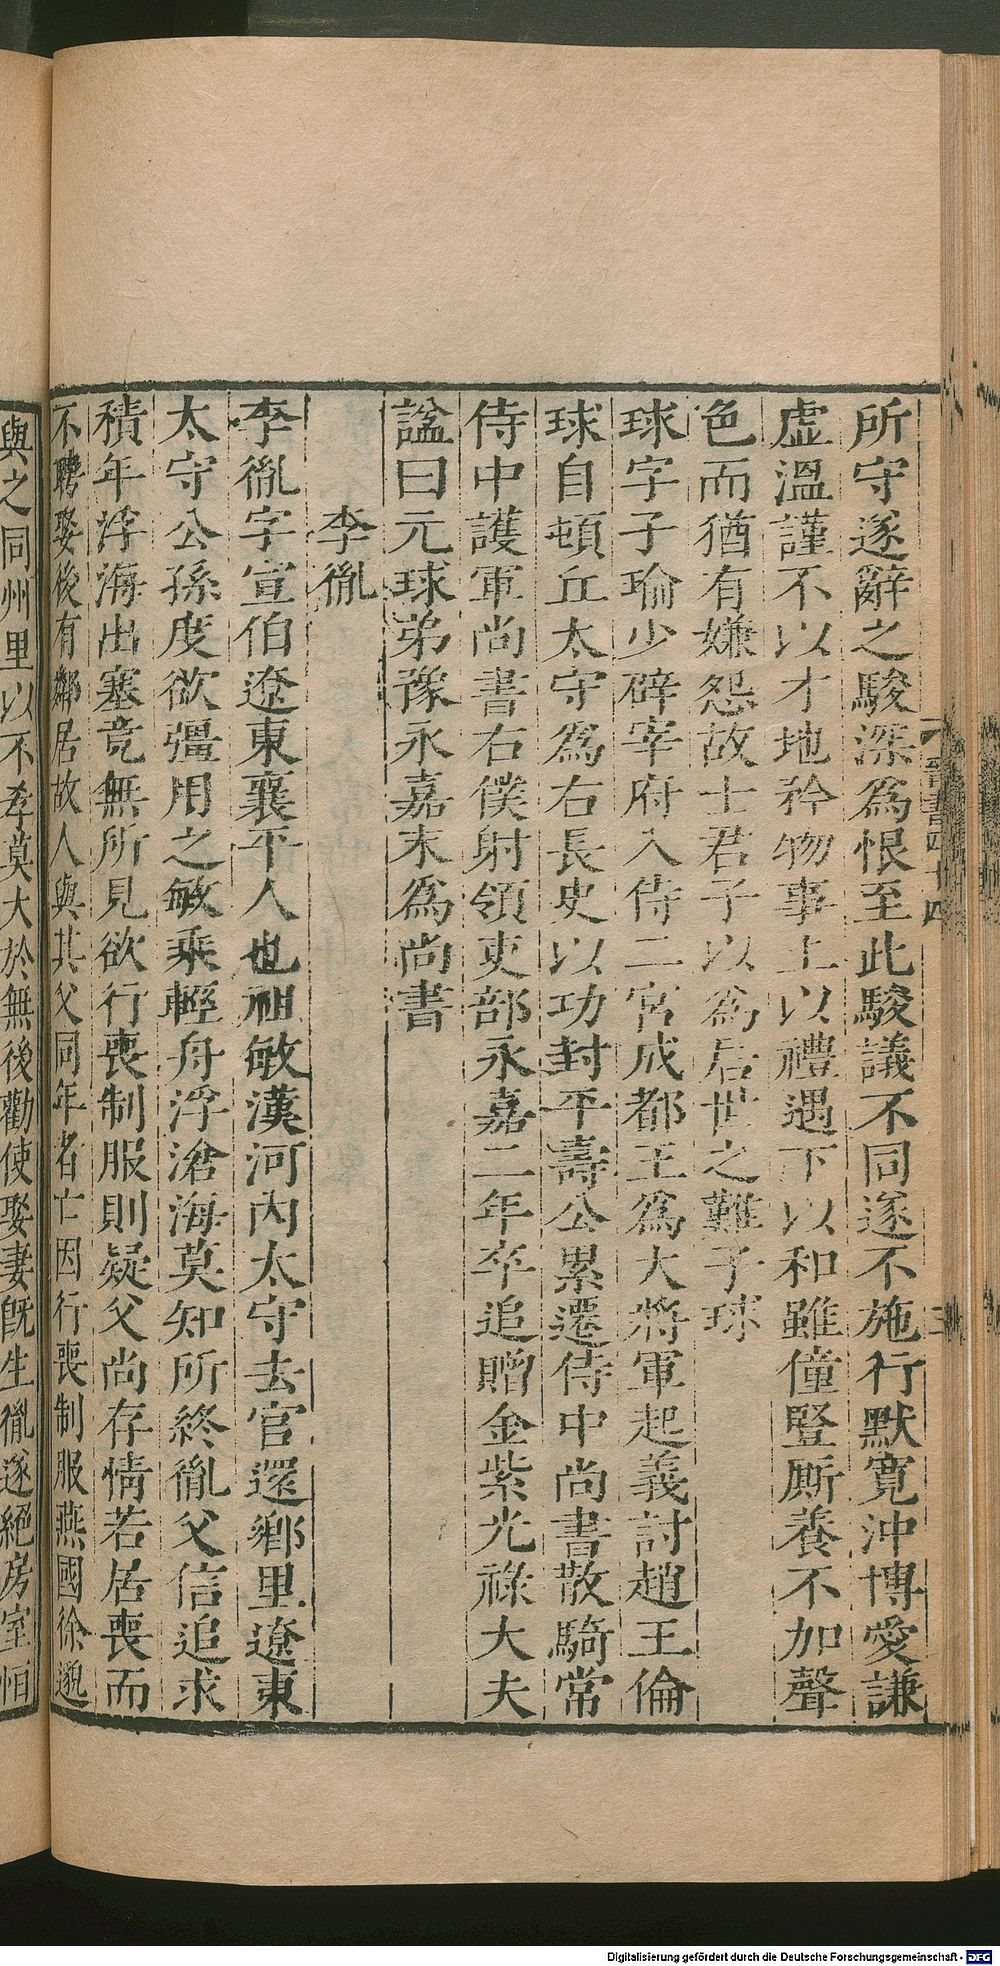 所守遂辭之駿深爲恨至此駿議不同遂不施行默寛沖博愛謙
虛溫謹不以才地矜物事上以禮遇下以和雖僮豎厮養不加聲
色而猶有嫌怨故士君子以爲居世之難子球
球字子瑜少辟宰府入侍二宮成都王爲大將軍起義討趙王倫
球自頓丘太守爲右長史以功封平壽公累遷侍中尚書散騎常
侍中護軍尚書右僕射領吏部永嘉二年卒追贈金紫光祿大夫
諡曰元球弟豫永嘉末爲尚書
李胤
李胤字宣伯遼東襄平人也祖敏漢河內太守去官還鄉里遼東
太守公孫度欲彊用之敏乘輕舟浮滄海莫知所終胤父信追求
積年浮海出塞竟無所見欲行喪制服則疑父尚存情若居喪而
不聘娶後有鄰居故人與其父同年者亡因行喪制服燕國徐邈
與之同州里以不孝莫大於無後勸使娶妻旣生胤遂絕房室恒
晉書四十四
三
Digitalisierung gefördert durch die Deutsche Forschungsgemeinschaft - DFG